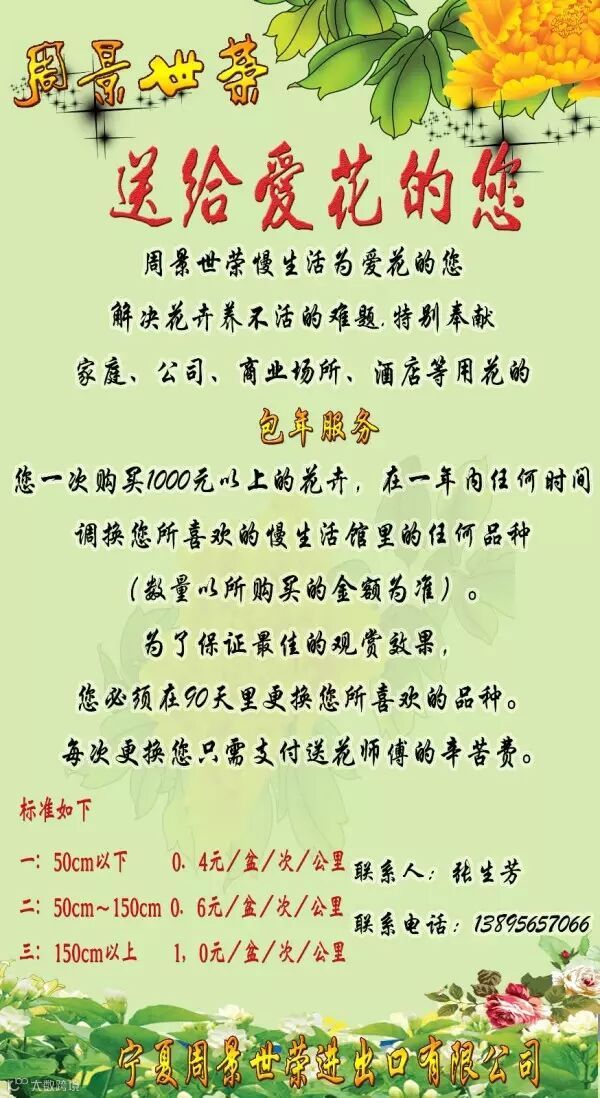 周景世荣
送给爱花的您
周景世荣慢生活为爱花的您
解决花卉养不活的难题,特别奉献
家庭、公司、商业场所、酒店等用花的
包年服务
您一次购买1000元以上的花卉，在一年内任何时间
调换您所喜欢的慢生活馆里的任何品种
（数量以所购买的金额为准）。
为了保证最佳的观赏效果，
您必须在90天里更换您所喜欢的品种。
每次更换您只需支付送花师傅的辛苦费。
标准如下
一：50cm以下 0.4元/盆/次/公里
二：50cm~150cm 0.6元/盆/次/公里
三：150cm以上 1,0元/盆/次/公里
联系人：张生芳
联系电话：13895657066
宁夏周景世荣进出口有限公司
大数跨境